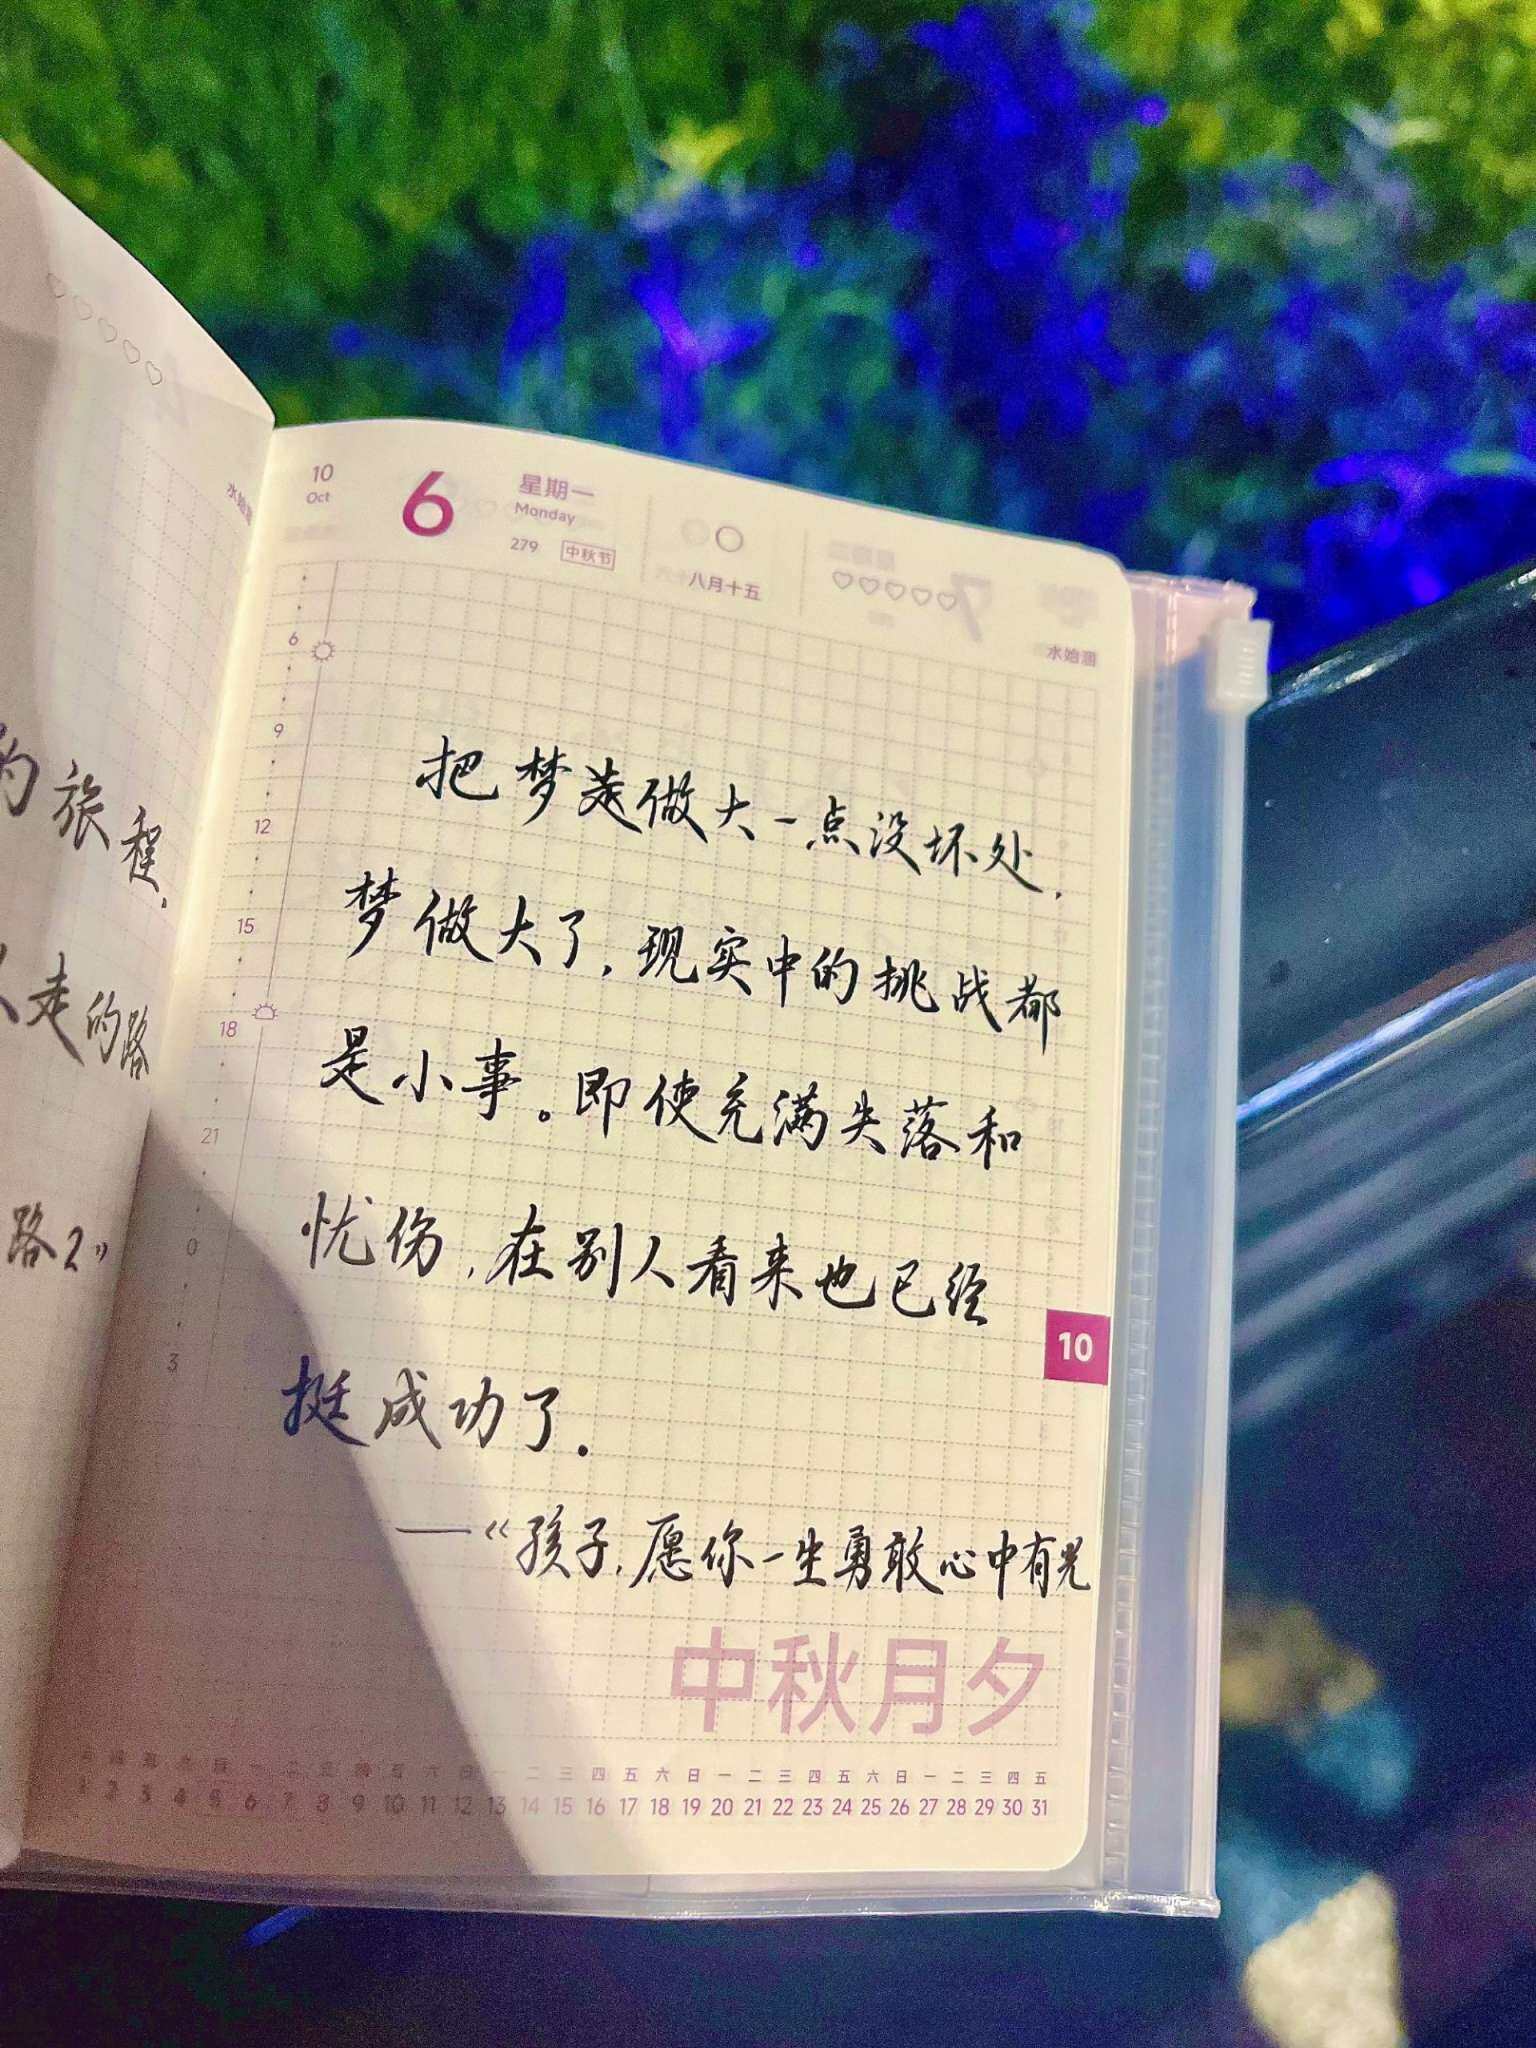 的旅程.
人走的路
路2》
10
Oct
6
星期一
Monday
279 中秋节
八月十五
水始涸
6
9
12
15
18
21
0
3
把梦做大一点没坏处,
梦做大了,现实中的挑战都
是小事。即使充满失落和
忧伤,在别人看来也已经
挺成功了.
——《孩子,愿你一生勇敢心中有光
10
中秋月夕
一 二 三 四 五 六 日 一 二 三 四 五 六 日 一 二 三 四 五
1 2 3 4 5 6 7 8 9 10 11 12 13 14 15 16 17 18 19 20 21 22 23 24 25 26 27 28 29 30 31